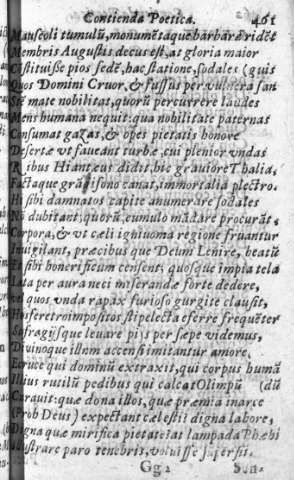 Contienda Poetica. 461
Mauſeoli tumulũ, monumẽtaque barbarè ridẽt
Membris Auguſtis decus eſt, at gloria maior
Cõſtituiſſe pios ſedẽ, hac ſtatione, ſodales (guis
Quos Domini Cruor, & fuſſus per vulnera ſan
Stẽ mate nobilitat, quorũ percurrere laudes
Mens humana nequit: qua nobilitate paternas
Conſumat gazas, & opes pietatis honore
Deſertæ vt faueant turbæ, cui plenior vndas
Ribus Hianteus didit, hic grauiore Thalia,
Factaque grãdiſono canat, immortalia plectro.
Hi ſibi damnatos capite anumerare ſodales
Nõ dubitant; quorũ, cumulo mãdare procurãt,
Corpora, & vt cæli igniuoma regione fruantur
Inuigilant, præcibus que Deum Lenire, beatũ
Et ſibi honerificum cenſent; quoſque impia tela
Lata per aura neci miſerandæ forte dedere,
vel quos vnda rapax furioſo gurgite clauſit,
Hos feretro impoſitos ſtipe lecta eferre frequẽter
Sufragijſque leuare pijs per ſæpe videmus,
Diuinoque illum accenſi imitantur amore,
E cruce qui dominũ extraxit, qui corpus humã
Illius rutilũ pedibus qui calcat Olimpũ (dũ
Curauit: quæ dona illos, quæ præmia inarce
(Proh Deus) expectant cæleſtii digna labore,
Digna quæ mirifica pietate? at lampada Phæbi
Illuſtrare paro tenebris, voluiſſe ſuperſit.
Gg2 Son-